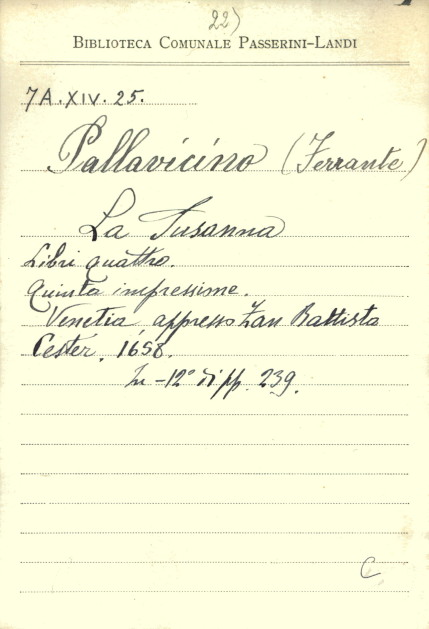 22)
BIBLIOTECA COMUNALE PASSERINI-LANDI
7A.XIV.25.
Pallavicino (Ferrante)
La Susanna
Libri quattro.
Quinta impressione.
Venetia, appresso Zan Battista
Cester, 1658.
In-12° di pp. 239.
C